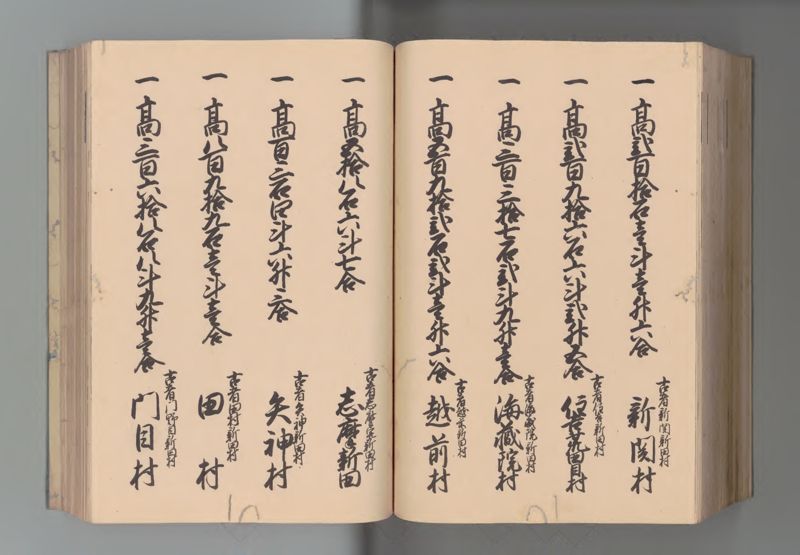 一 高弐百拾石壱斗壱升六合
古者新関新田村
新関村
一 高弐百九拾六石六斗弐升五合
新田村
荒田目村
一 高三百三拾七石弐斗九升壱合
古者海蔵院新田村
海蔵院村
一 高五百九拾弐石弐斗壱升六合
古者越前新田村
越前村
一 高五拾八石六斗七合
古者志摩新田村
志摩新田
一 高百三石四斗六升三合
古者矢神新田村
矢神村
一 高八百九拾九石壱斗壱合
古者田村新田村
田村
一 高三百六拾八石八斗九升壱合
古者門野目新田村
門目村